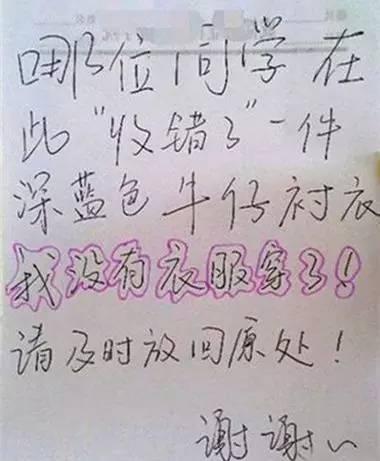 哪位同学在
此"收错了"一件
深蓝色牛仔衬衣
我没有衣服穿了!
请及时放回原处!
谢谢~